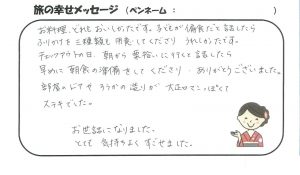 旅の幸せメッセージ（ペンネーム：　　　　　）
お料理、とれも、おいしかったです。子どもが偏食だと話したら
ふりかけを三種類も用意してくださり うれしかったです。
チェックアウトの日、朝から葉裕いに行くと話したら
早めに朝食の準備をしてくださり、ありがとうございました。
部屋のドアや ろうかの造りが 大正ロマンっぽくて
ステキでした。
お世話になりました。
とても 気持ちよく すごせました。